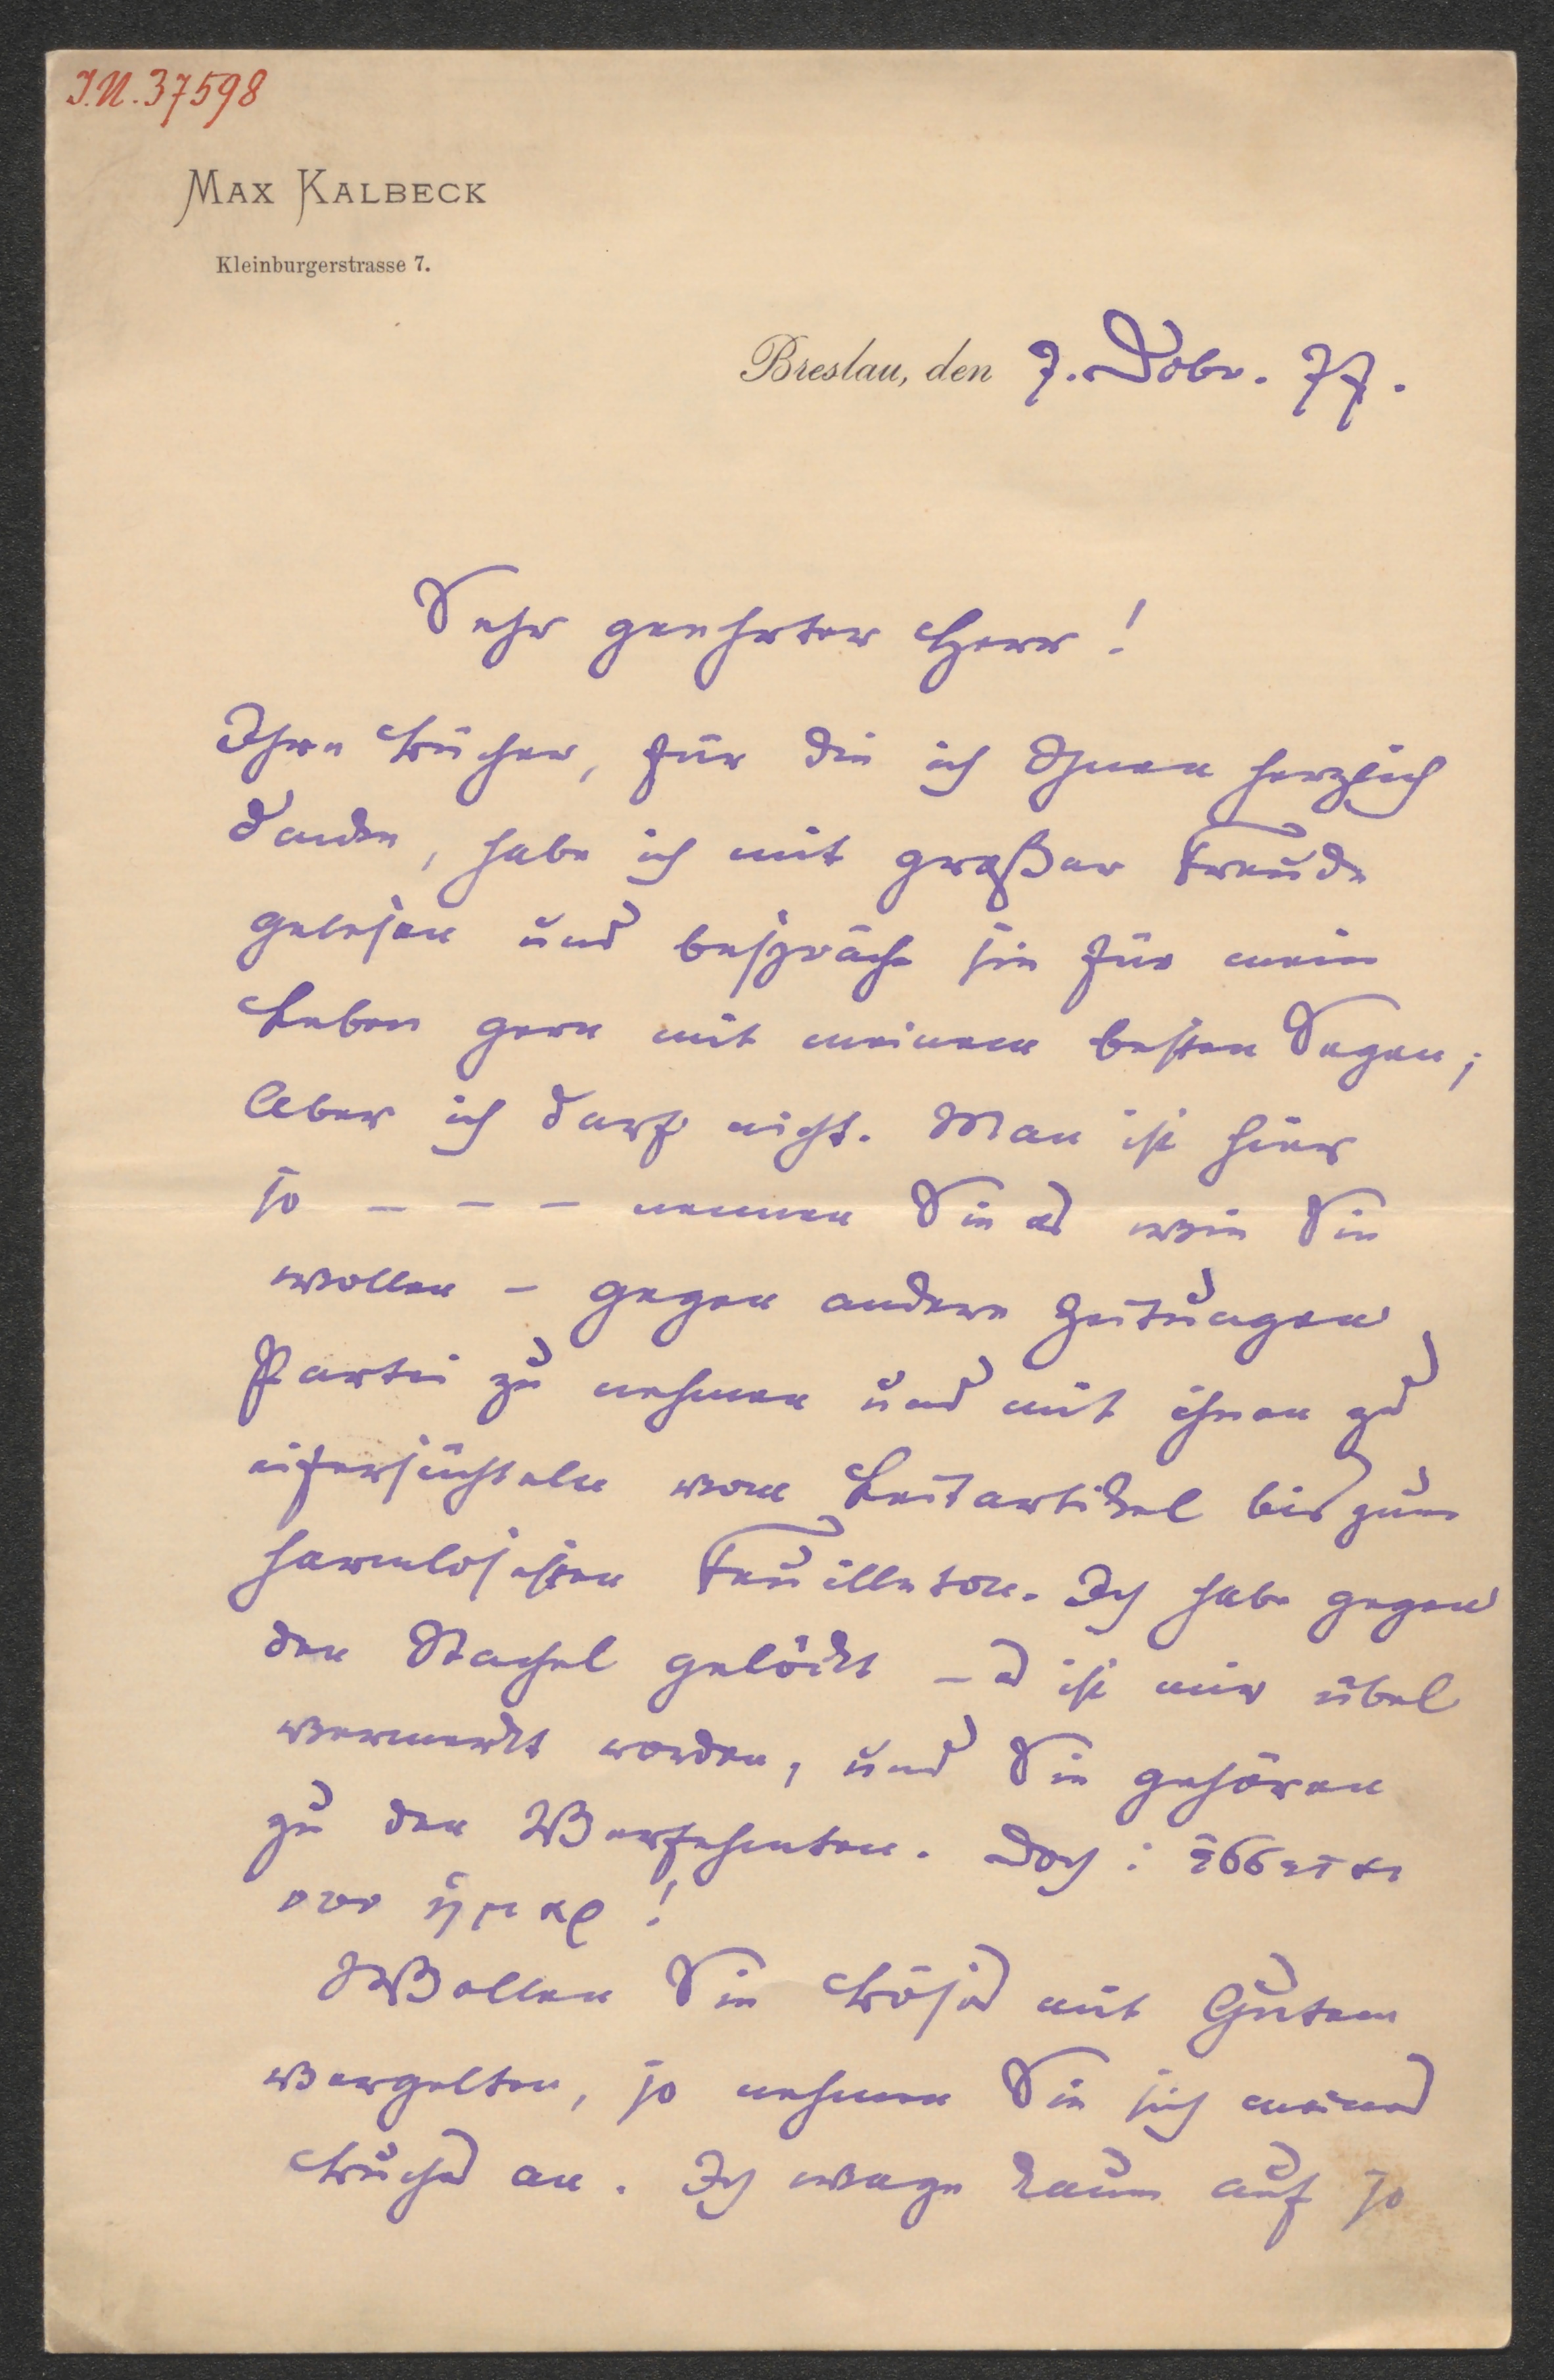 I.N. 37598
MAX KALBECK
Kleinburgerstrasse 7.
Breslau, den 7. Dcbr. 77.
Sehr geehrter Herr!
Ihre Bücher, für die ich Ihnen herzlich
danke, habe ich mit großer Freude
gelesen und bespräche sie für mein
Leben gern mit meinem besten Segen;
Aber ich darf nicht. Man ist hier
so – – – nennen Sie es wie Sie
wollen – gegen andere Zeitungen
Partei zu nehmen und mit ihnen zu
eifersüchteln vom Leitartikel bis zum
harmlosesten Feuilleton. Ich habe gegen
den Stachel gelöckt – es ist mir übel
vermerkt worden, und Sie gehören
zu den Verfehmten. Doch: ἔσσεται
ἦμαρ!
Wollen Sie Böses mit Gutem
vergelten, so nehmen Sie sich meines
Buches an. Ich wage kaum auf so